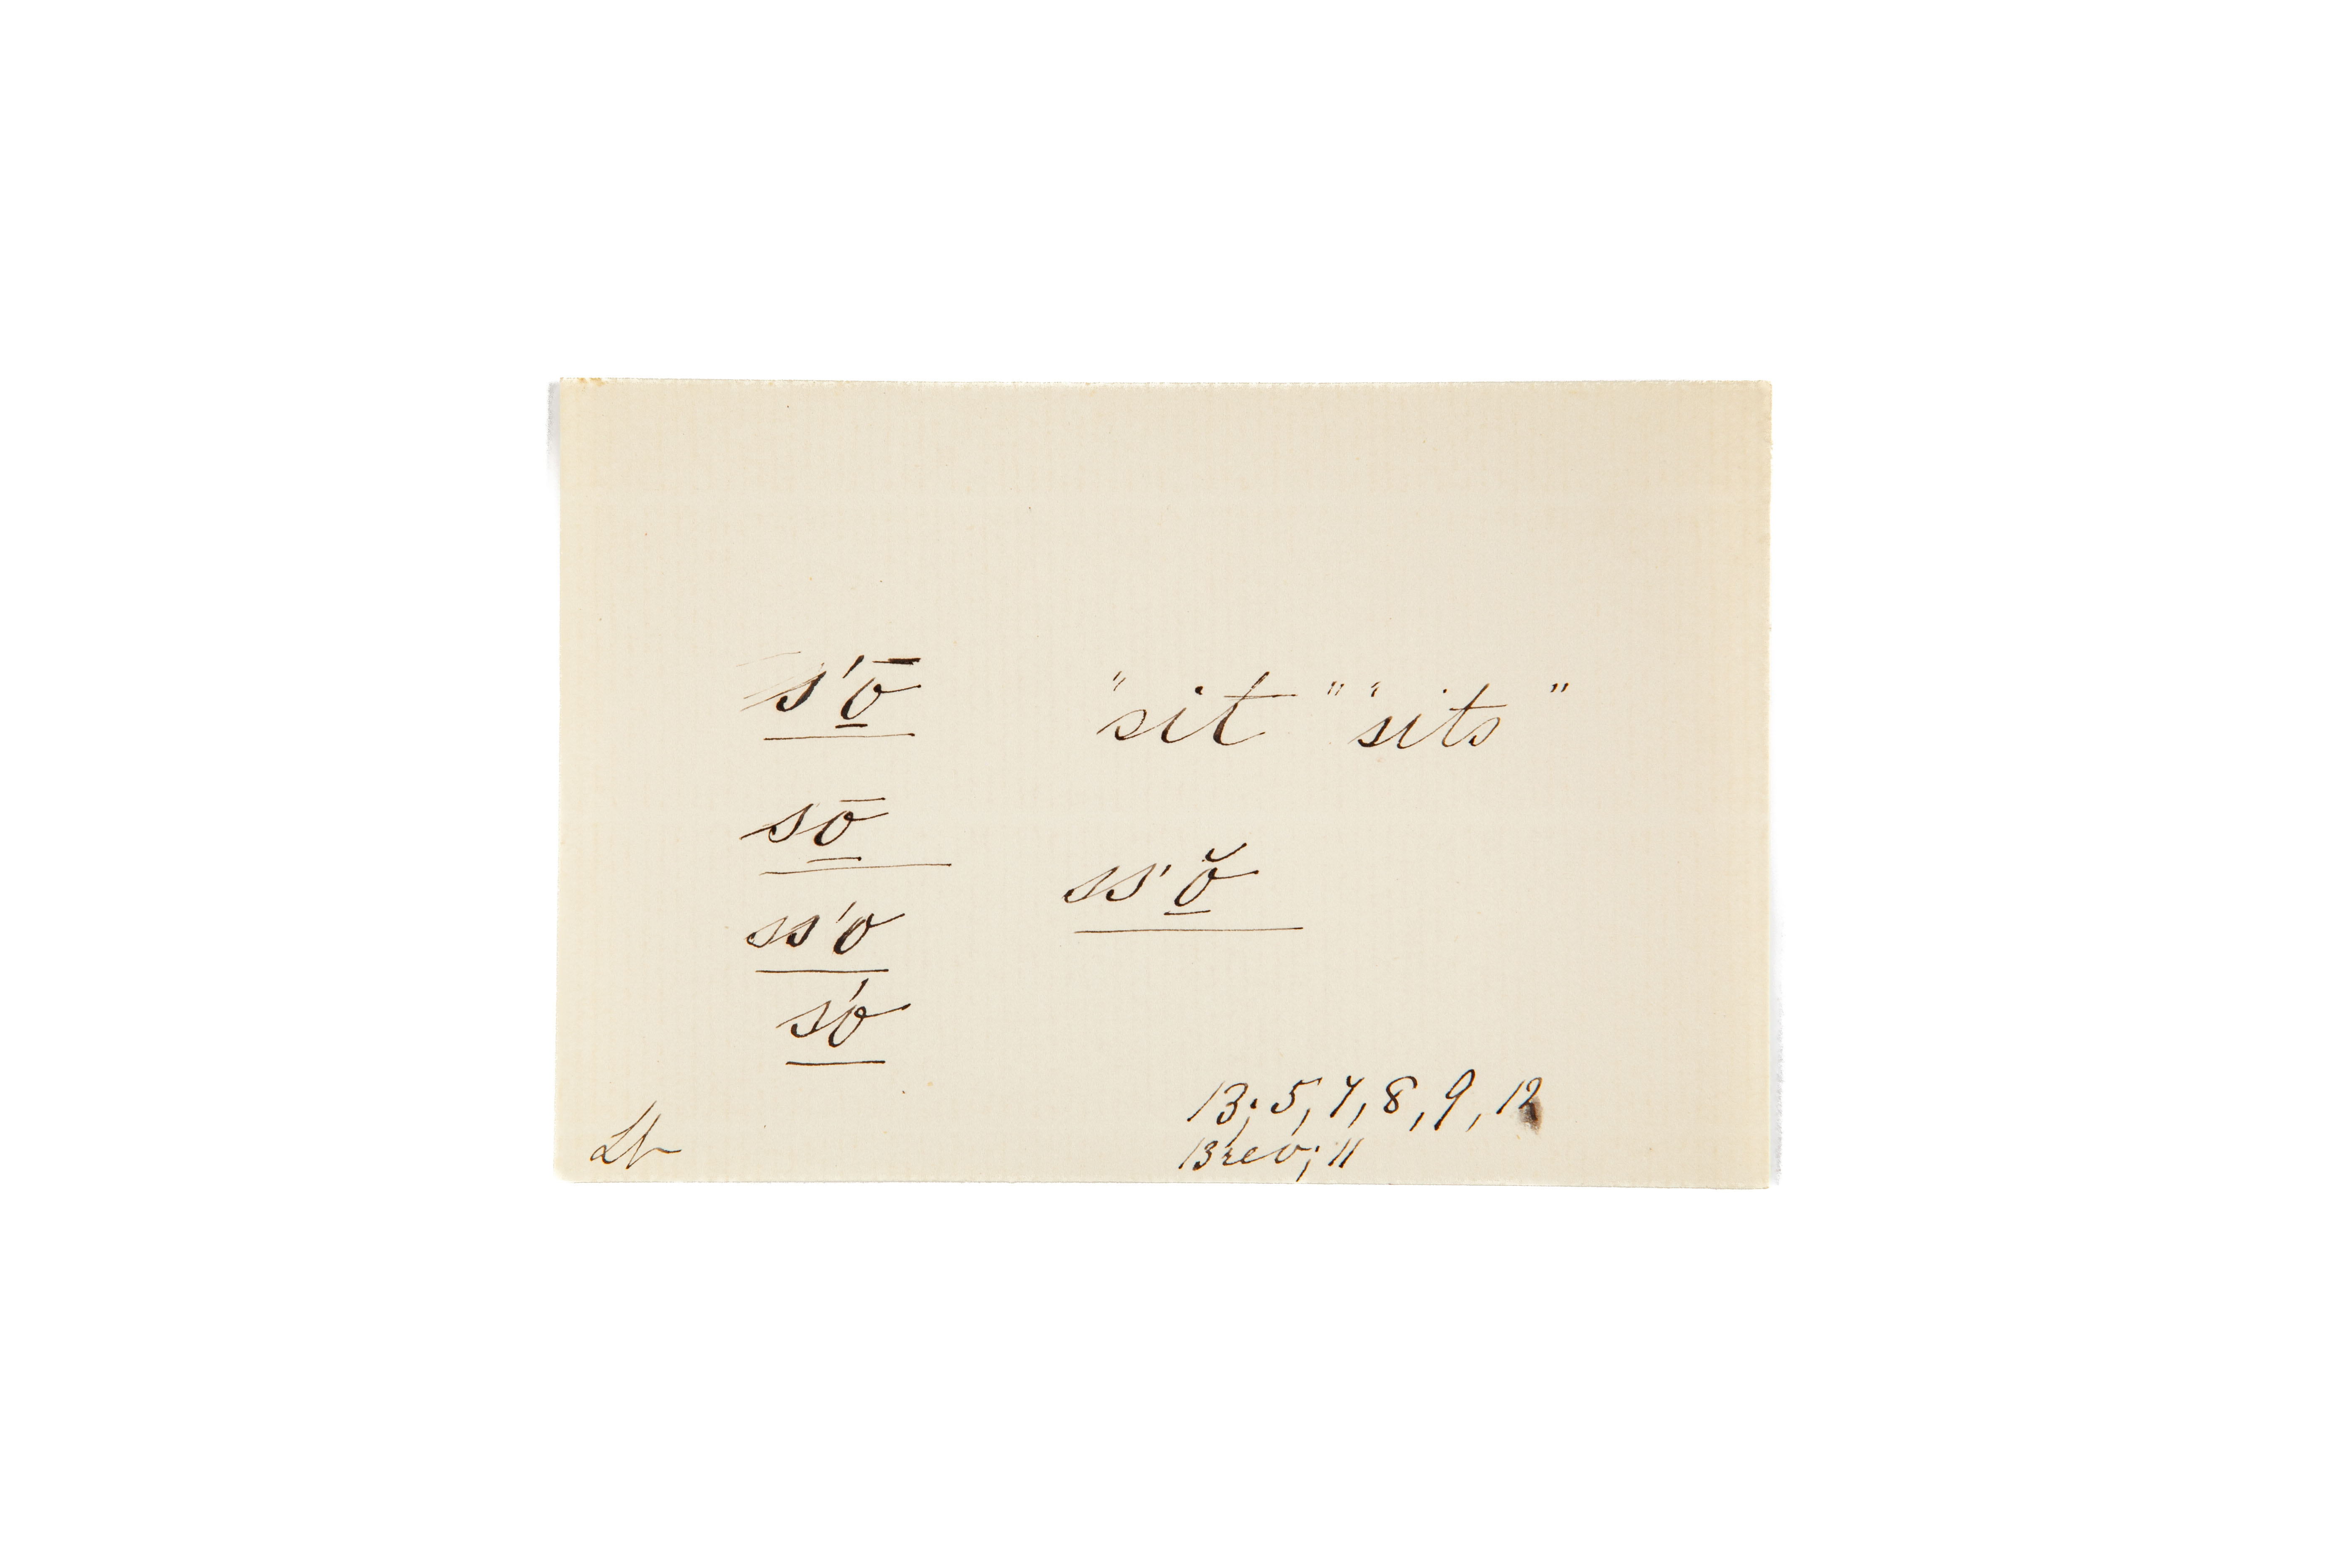 s'ō̱ "sit" "sits"
sō̱
ss'ŏ̱
ss'o
s'o
13; 5, 7, 8, 9, 12
13rev; 11